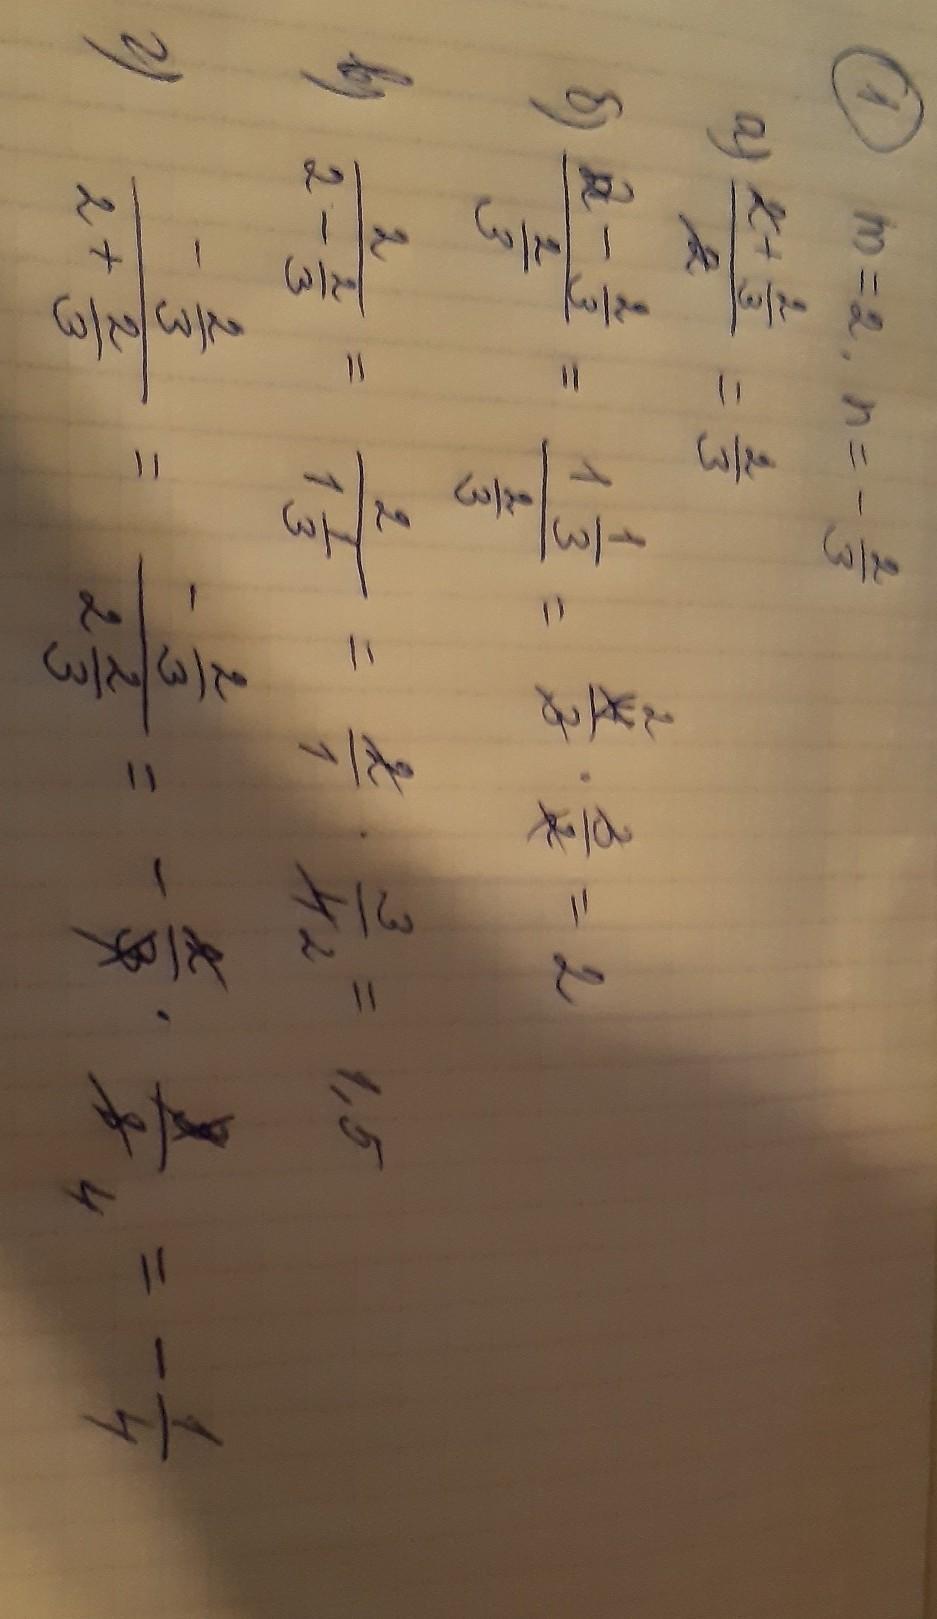 ① m = 2, n = -2/3
а) (2 + 2/3)/2 = 2/3
б) (2 - 2/3)/(2/3) = (1 1/3)/(2/3) = 4/3 2 · 3/2 = 2
в) 2/(2 - 2/3) = 2/(1 1/3) = 2/1 · 3/4 2 = 1,5
г) (-2/3)/(2 + 2/3) = (-2/3)/(2 2/3) = -2/3 · 3/8 4 = -1/4